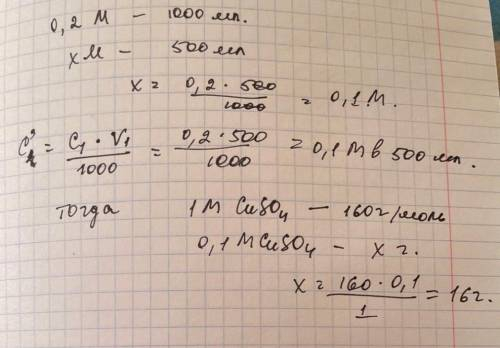 0,2 М — 1000 мл.
х М — 500 мл
х = 0,2 · 500 / 1000 = 0,1 М.
C = C₁ · V₁ / 1000 = 0,2 · 500 / 1000 = 0,1 М в 500 мл.
тогда 1 М CuSO₄ — 160 г/моль
0,1 М CuSO₄ — х г.
х = 160 · 0,1 / 1 = 16 г.